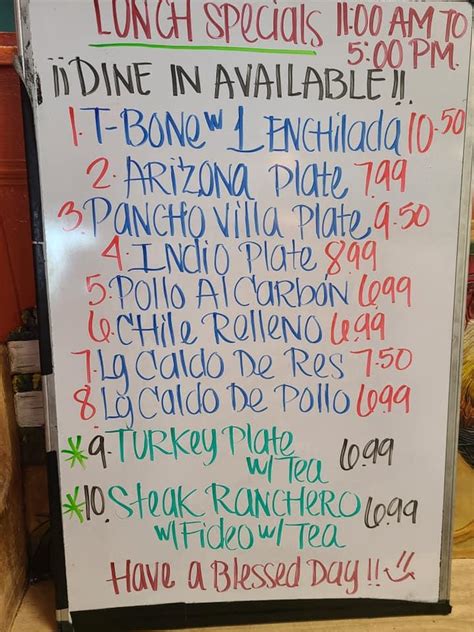 LUNCH Specials 11:00 AM TO
5:00 PM.
¡¡DINE IN AVAILABLE!!
1. T-BONE w 1 ENCHILADA 10.50
2. ARIZONA Plate 7.99
3. PANCHO VILLA PLATE 9.50
4. INDIO PLATE 8.99
5. POLLO Al CARBÓN 6.99
6. CHILE RELLENO 6.99
7. Lg CALDO DE RES 7.50
8 Lg CALDO DE POLLO 6.99
*9. TURKEY PLATE
w/ TEA 6.99
*10. STEAK RANCHERO 6.99
w/ FIDEO w/ TEA
HAVE A BLESSED DAY!!